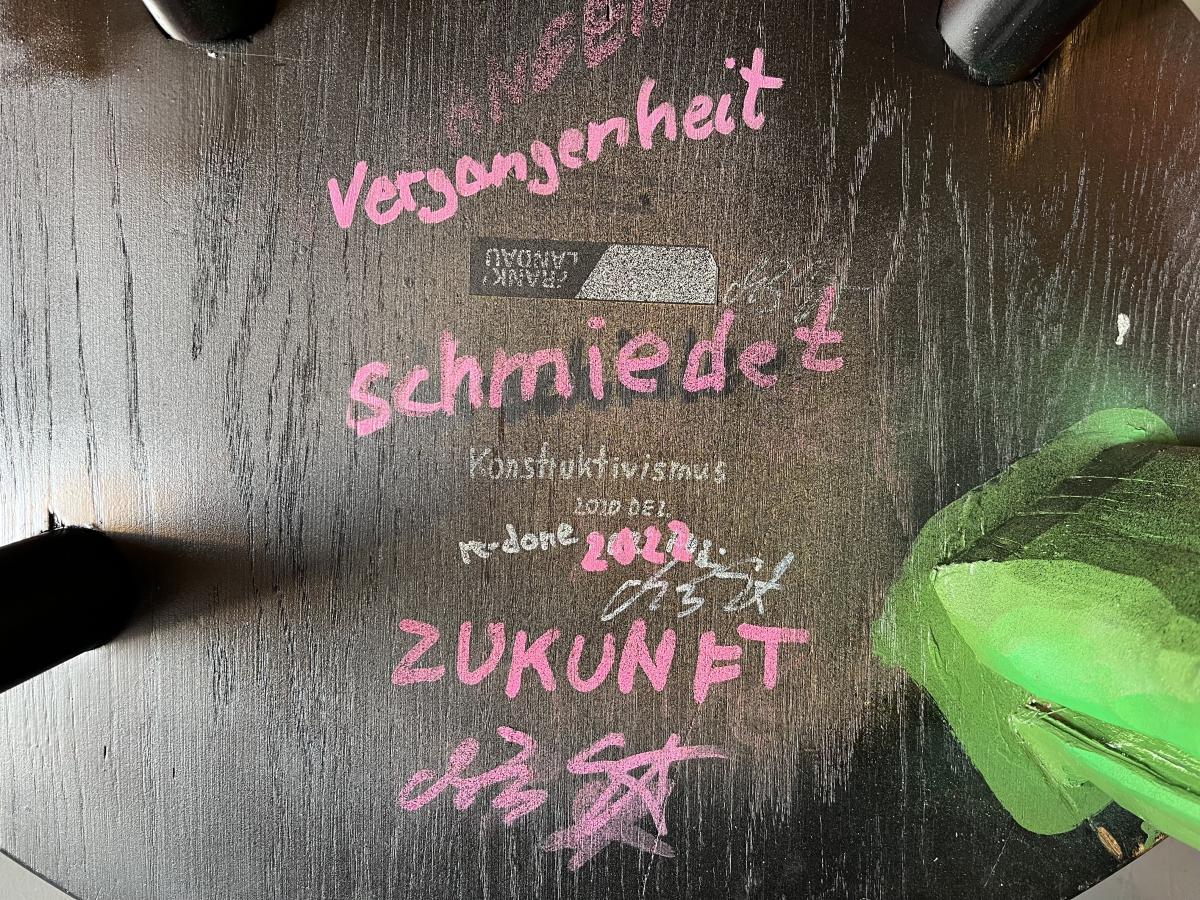 Vergangenheit
FRANK
LANDAU
schmiedet
Konstruktivismus
2020 DEZ.
re-done 2022
ZUKUNFT